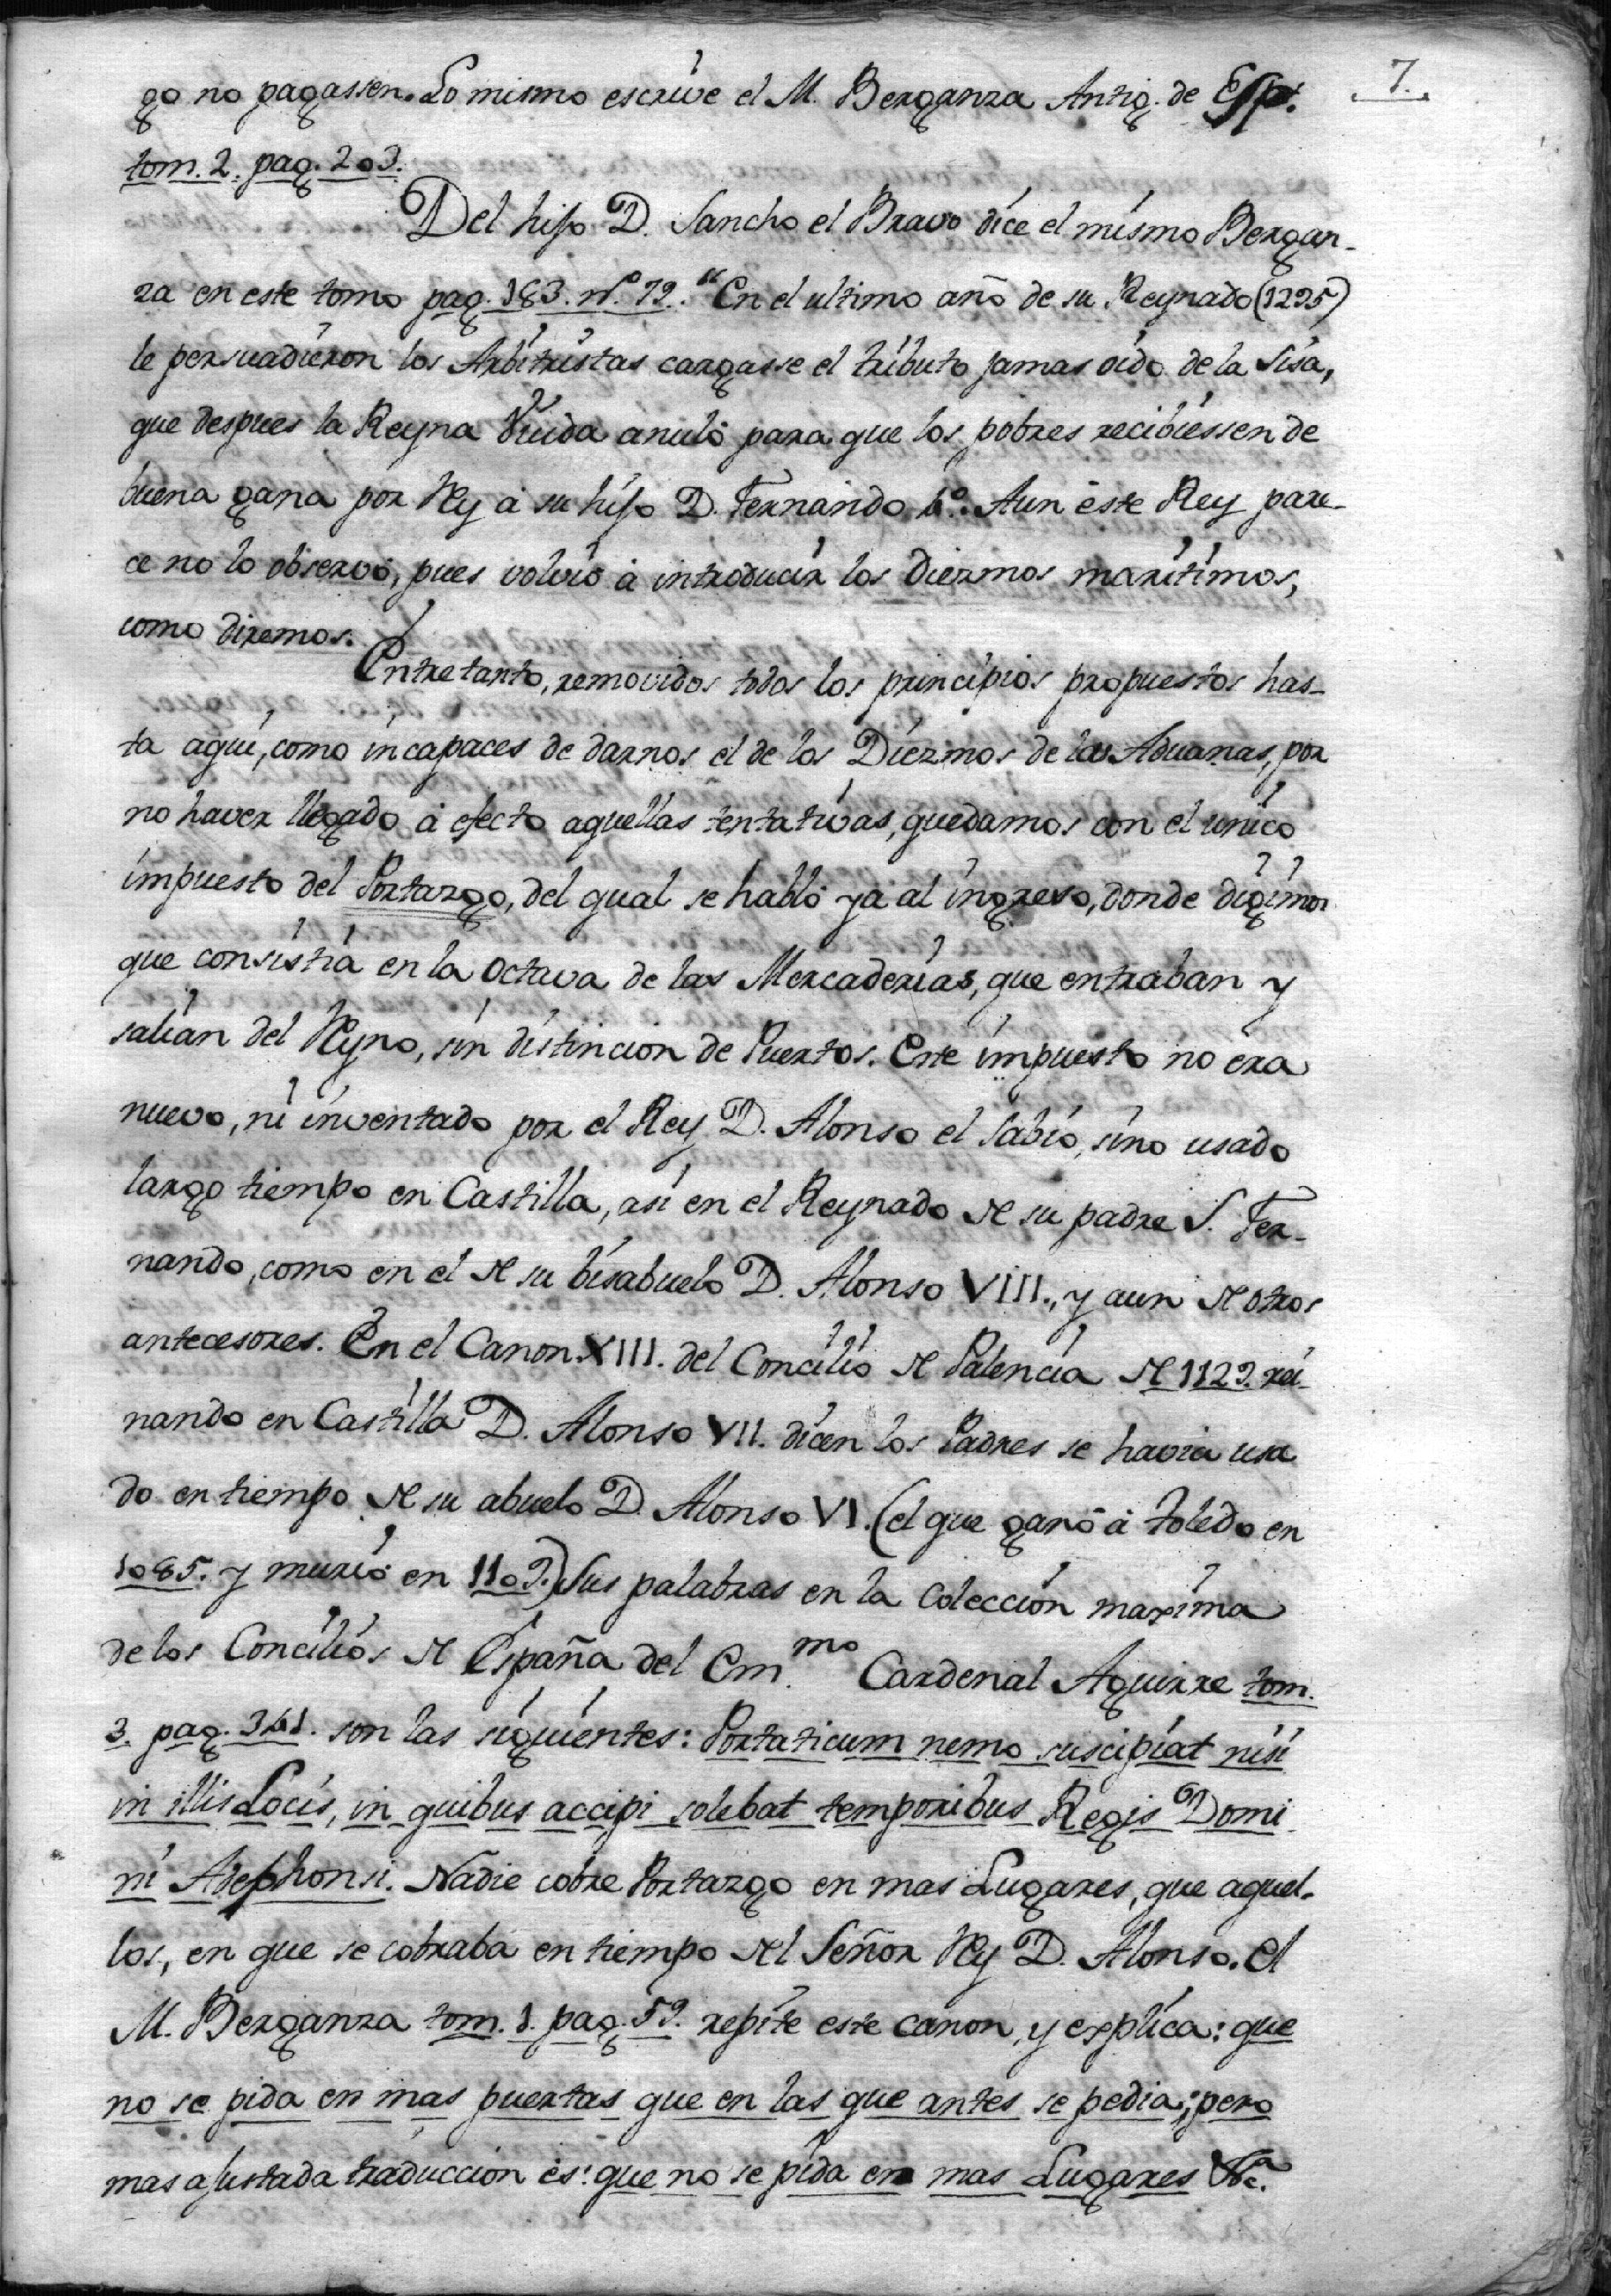 7.
go no pagassen. Lo mismo escrive el M. Berganza Antig. de Esp.
tom. 2. pag. 203.
Del hijo D. Sancho el Bravo dice el mismo Bergan-
za en este tomo pag. 183. nº. 72. "En el ultimo año de su Reynado (1295)
le persuadieron los Arbitristas cargasse el tributo jamas oido de la Sisa,
que despues la Reyna Viuda anuló para que los pobres recibiessen de
buena gana por Rey á su hijo D. Fernando 4º. Aun este Rey pare-
ce no lo observó, pues volvió á introducir los Diezmos maritimos,
como diremos.
Entretanto, removidos todos los principios propuestos has-
ta aqui, como incapaces de darnos el de los Diezmos de las Aduanas, por
no haver llegado á efecto aquellas tentativas, quedamos con el unico
impuesto del Portazgo, del qual se habló ya al ingreso, donde digimos
que consistia en la octava de las Mercaderias, que entraban y
salian del Reyno, sin distincion de Puertos. Este impuesto no era
nuevo, ni inventado por el Rey D. Alonso el Sabio, sino usado
largo tiempo en Castilla, asi en el Reynado de su padre S. Fer-
nando, como en el de su bisabuelo D. Alonso VIII., y aun de otros
antecesores. En el Canon XIII. del Concilio de Palencia de 1129. rei-
nando en Castilla D. Alonso VII. dicen los Padres se havia usa
do en tiempo de su abuelo D. Alonso VI. (el que ganó á Toledo en
1085. y murió en 1109.) Sus palabras en la Coleccion maxima
de los Concilios de España del Em.mo Cardenal Aguirre tom.
3. pag. 341. son las siguientes: Portaticum nemo suscipiat nisi
in illis Locis, in quibus accipi solebat temporibus Regis Domi-
ni Adephonsi. Nadie cobre Portazgo en mas Lugares, que aquel-
los, en que se cobraba en tiempo del Señor Rey D. Alonso. El
M. Berganza tom. 1. pag. 59. repite este canon, y explica: que
no se pida en mas puertas que en las que antes se pedia; pero
mas ajustada traduccion es: que no se pida en mas Lugares &c.